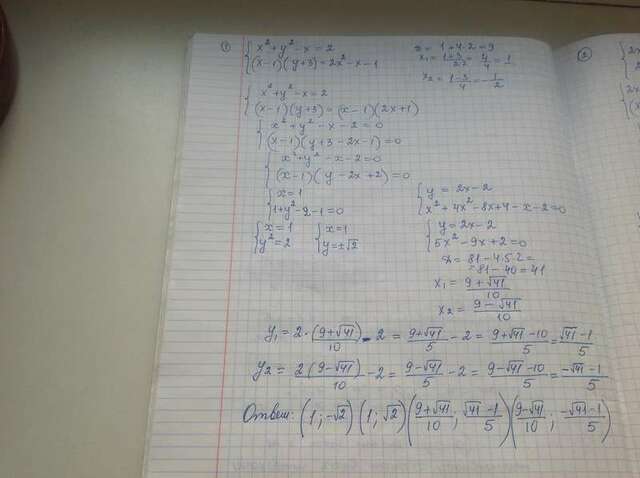 1) { x² + y² - x = 2
(x-1)(y+3) = 2x² - x - 1
D = 1 + 4·2 = 9
x₁ = (1+3)/(2·2) = 4/4 = 1
x₂ = (1-3)/4 = -1/2
{ x² + y² - x = 2
(x-1)(y+3) = (x-1)(2x+1)
{ x² + y² - x - 2 = 0
(x-1)(y+3-2x-1) = 0
{ x² + y² - x - 2 = 0
(x-1)(y-2x+2) = 0
{ x = 1
1 + y² - 2 - 1 = 0
{ x = 1
y² = 2
{ x = 1
y = ±√2
{ y = 2x - 2
x² + 4x² - 8x + 4 - x - 2 = 0
{ y = 2x - 2
5x² - 9x + 2 = 0
D = 81 - 4·5·2 =
= 81 - 40 = 41
x₁ = (9+√41)/10
x₂ = (9-√41)/10
y₁ = 2·(9+√41)/10 - 2 = (9+√41)/5 - 2 = (9+√41-10)/5 = (√41-1)/5
y₂ = 2(9-√41)/10 - 2 = (9-√41)/5 - 2 = (9-√41-10)/5 = (-√41-1)/5
Ответ: (1; -√2) (1; √2) ((9+√41)/10; (√41-1)/5) ((9-√41)/10; (-√41-1)/5)
2)
{ 2x
{ 2x